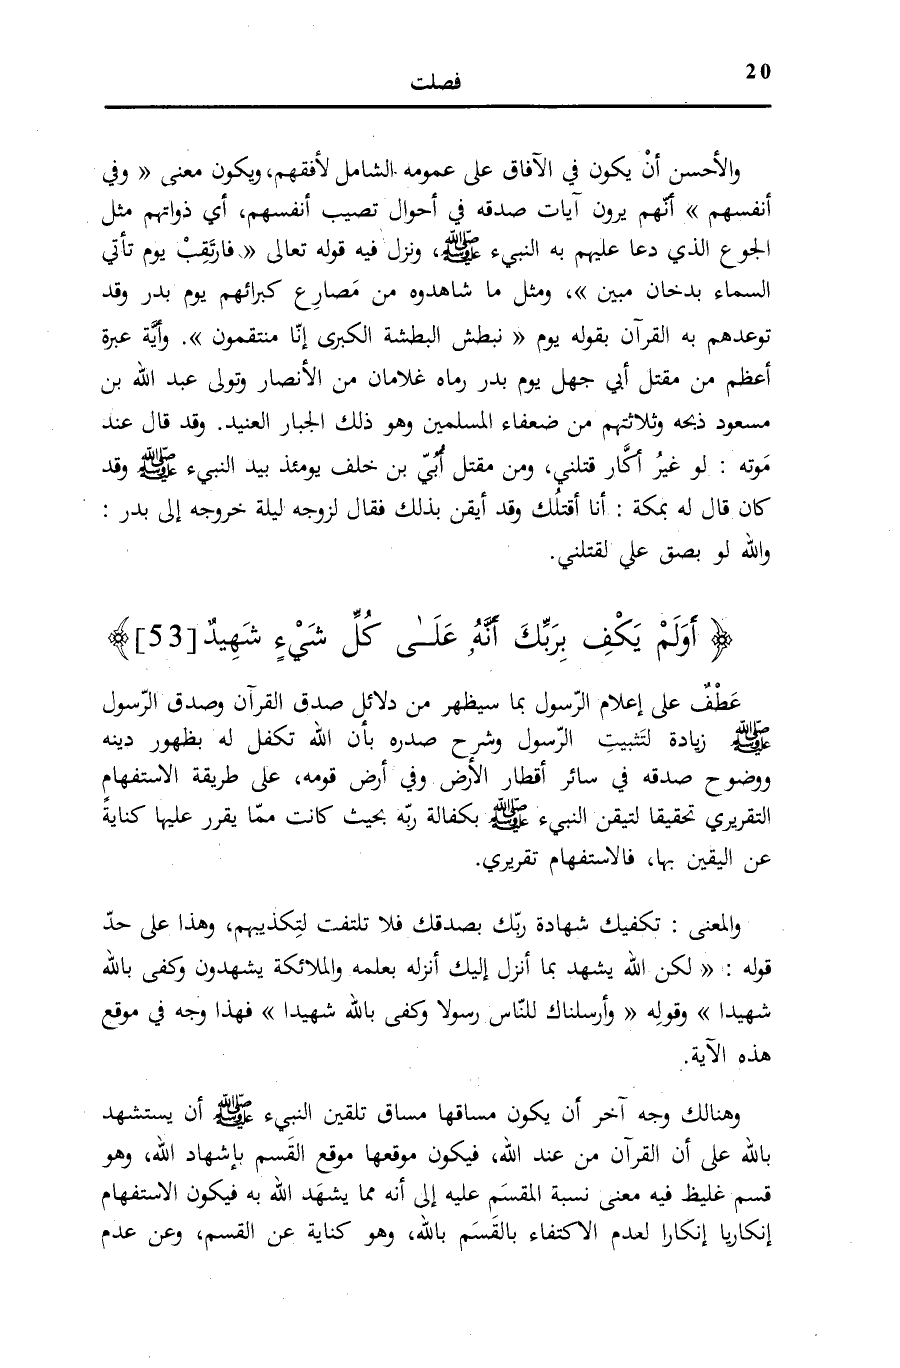 20
فصلت
والأحسن أنْ يكون في الآفاق على عمومه الشامل لأفقهم، ويكون معنى « وفي
أنفسهم » أنّهم يرون آيات صدقه في أحوال تصيب أنفسهم، أي ذواتهم مثل
الجوع الذي دعا عليهم به النبيء ﷺ، ونزل فيه قوله تعالى « فارتَقِبْ يوم تأتي
السماء بدخان مبين »، ومثل ما شاهدوه من مَصارِع كبرائهم يوم بدر وقد
توعدهم به القرآن بقوله يوم « نبطش البطشة الكبرى إنّا منتقمون ». وأيَّة عبرة
أعظم من مقتل أبي جهل يوم بدر رماه غلامان من الأنصار وتولى عبد الله بن
مسعود ذبحه وثلاثتهم من ضعفاء المسلمين وهو ذلك الجبار العنيد. وقد قال عند
مَوته : لو غيرُ أكَّار قتلني، ومن مقتل أُبيّ بن خلف يومئذ بيد النبيء ﷺ وقد
كان قال له بمكة : أنا أقتلُك وقد أيقن بذلك فقال لزوجه ليلة خروجه إلى بدر :
والله لو بصق علي لقتلني.
﴿ أَوَلَمْ يَكْفِ بِرَبِّكَ أَنَّهُ عَلَـىٰ كُلِّ شَيْءٍ شَهِيدٌ [53]﴾
عَطْفٌ على إعلام الرّسول بما سيظهر من دلائل صدق القرآن وصدق الرّسول
ﷺ زيادة لتَثبيتِ الرّسول وشرح صدره بأن الله تكفل له بظهور دينه
ووضوح صدقه في سائر أقطار الأرض وفي أرض قومه، على طريقة الاستفهام
التقريري تحقيقا لتيقن النبيء ﷺ بكفالة ربّه بحيث كانت ممّا يقرر عليها كنايةً
عن اليقين بها، فالاستفهام تقريري.
والمعنى : تكفيك شهادة ربّك بصدقك فلا تلتفت لتِكذيبهم، وهذا على حدّ
قوله : « لكن الله يشهد بما أنزل إليك أنزله بعلمه والملائكة يشهدون وكفى بالله
شهيدا » وقولِه « وأرسلناك للنّاس رسولا وكفى بالله شهيدا » فهذا وجه في موقع
هذه الآية.
وهنالك وجه آخر أن يكون مساقها مساق تلقين النبيء ﷺ أن يستشهد
بالله على أن القرآن من عند الله، فيكون موقعها موقع القَسم بإشهاد الله، وهو
قسم غليظ فيه معنى نسبة المقسَم عليه إلى أنه مما يشهَد الله به فيكون الاستفهام
إنكاريا إنكارا لعدم الاكتفاء بالقَسَم بالله، وهو كناية عن القسم، وعن عدم